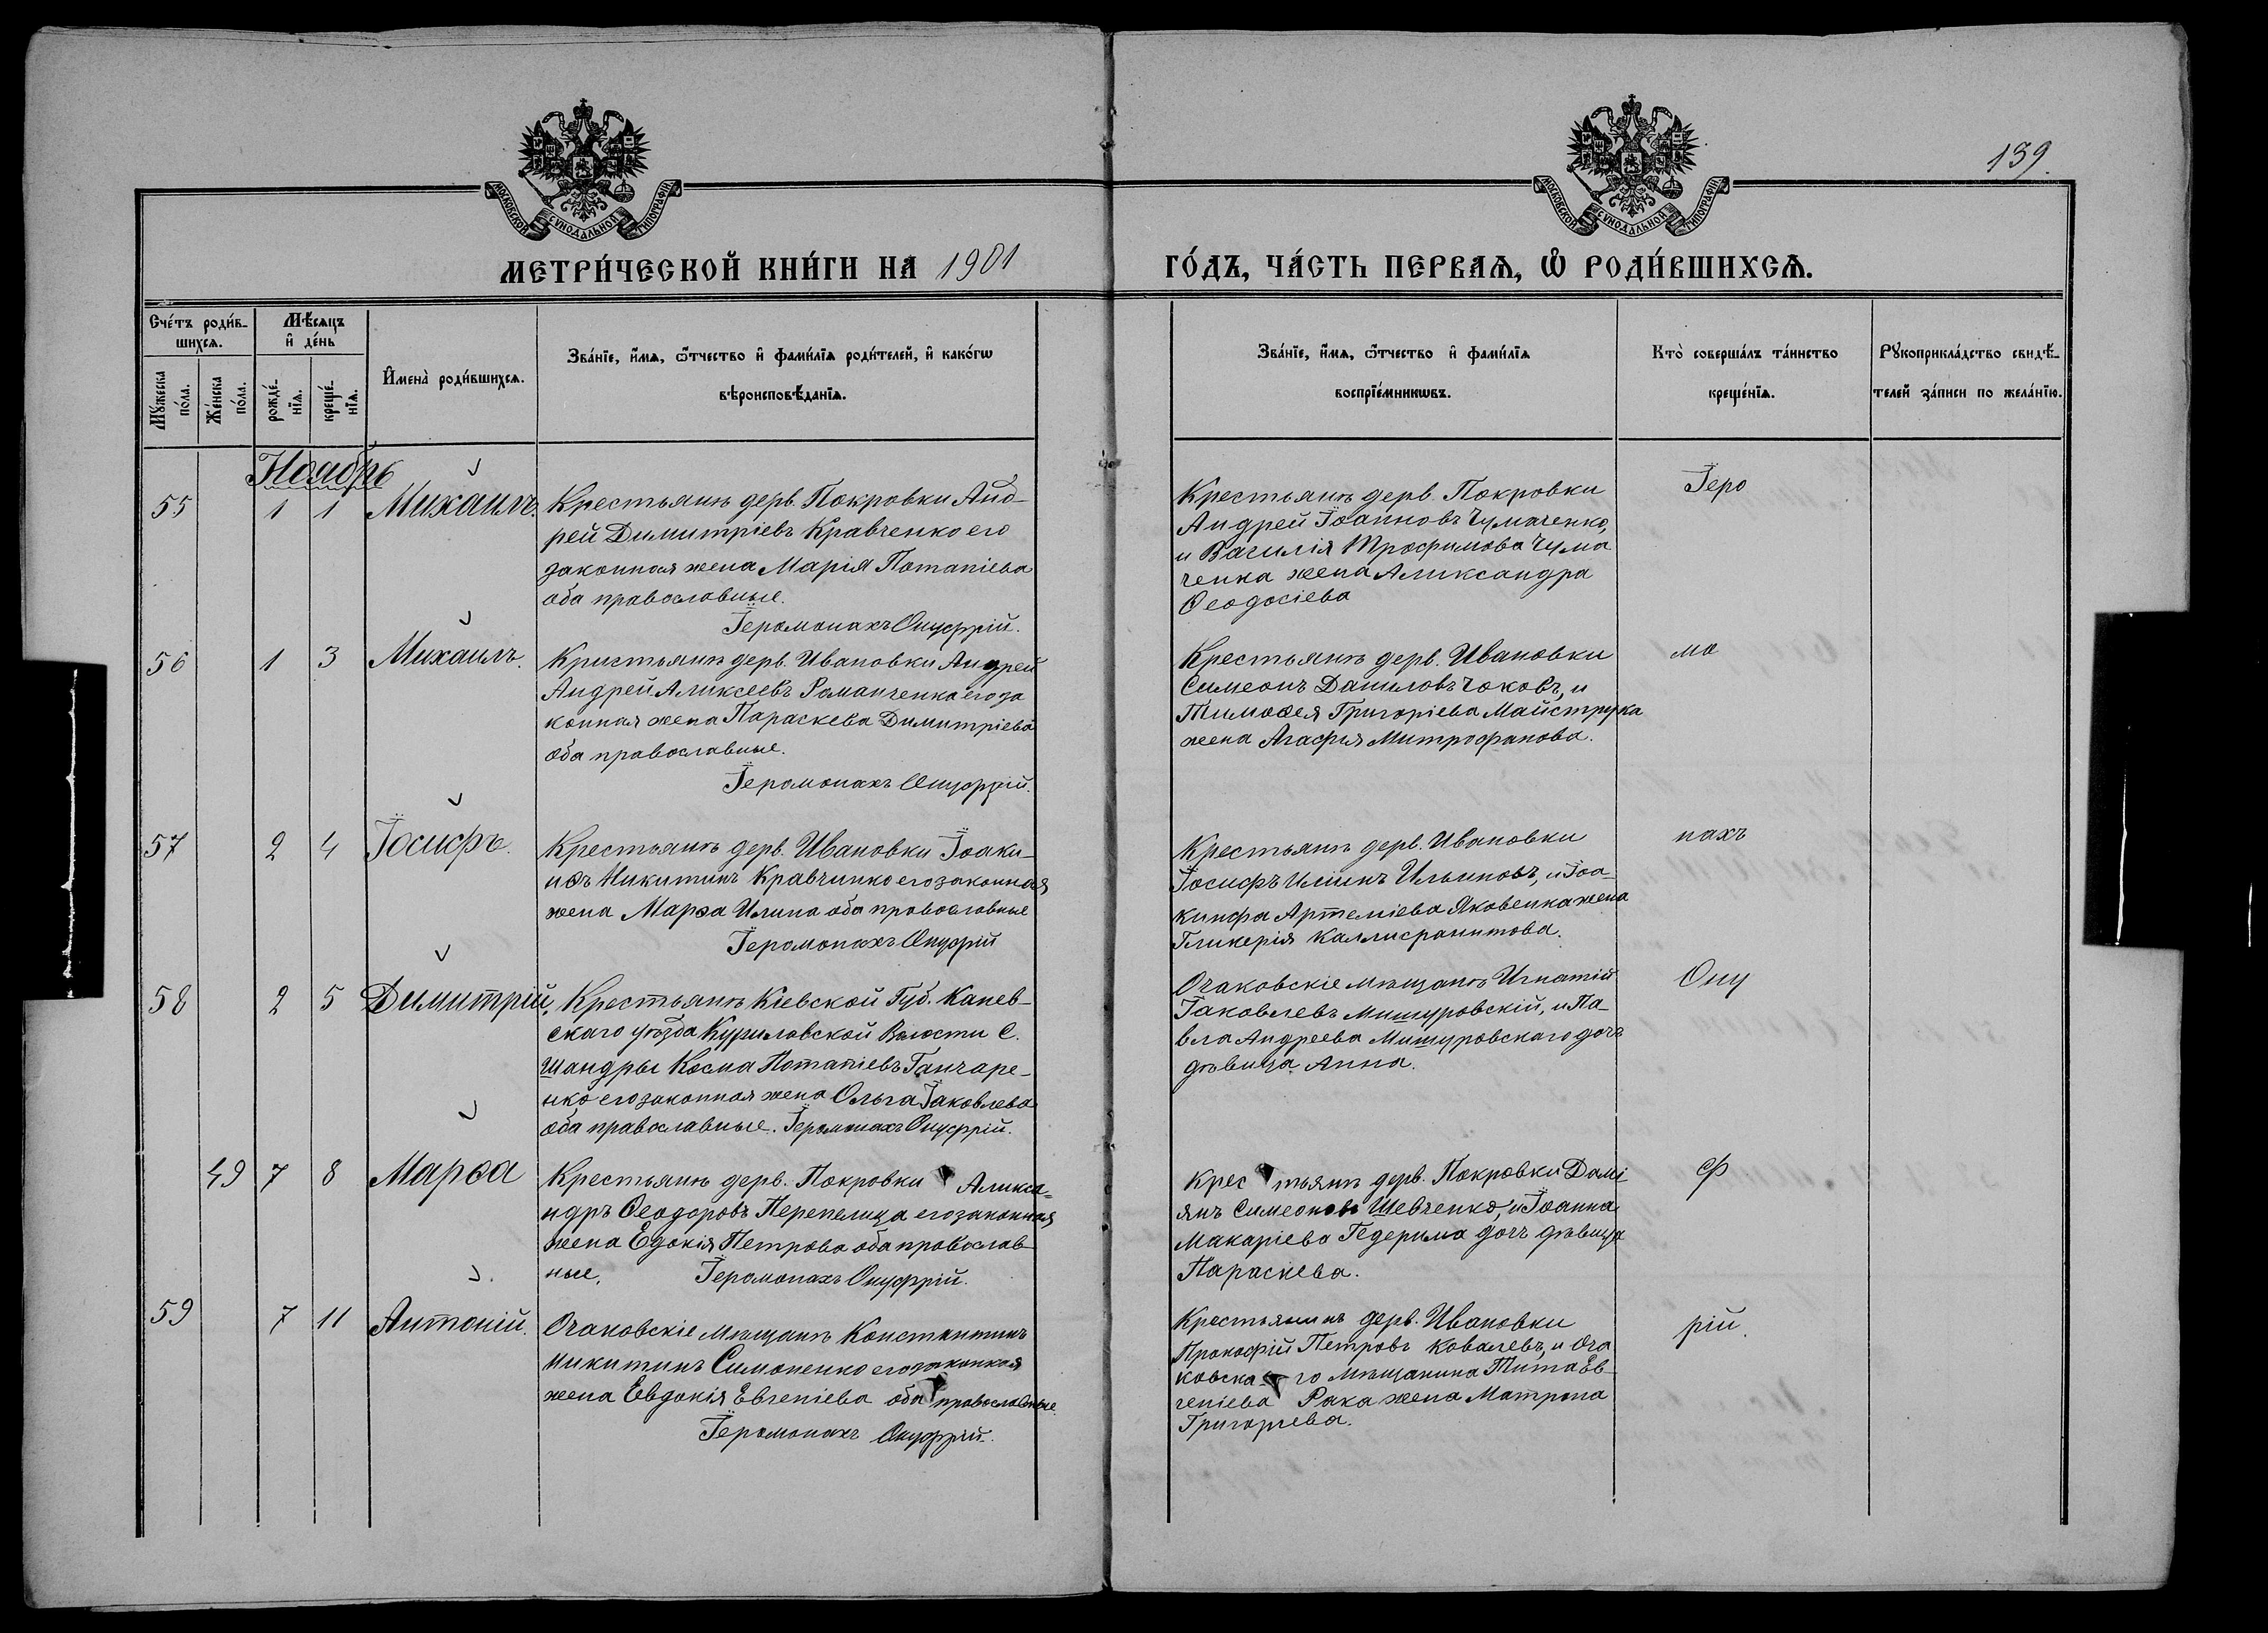 139.
МОСКОВСКОЙ СѴНОДАЛЬНОЙ ТИПОГРАФІИ
МОСКОВСКОЙ СѴНОДАЛЬНОЙ ТИПОГРАФІИ
МЕТРИ́ЧЕСКОЙ КНИ́ГИ НА 1901 ГО́ДЪ, ЧА́СТЬ ПЕРВАѦ, Ѡ҆ РОДИ́ВШИХСѦ.
Сче́тъ роди́в-
шихсѧ.
Мꙋ́жеска по́ла.
Же́нска по́ла.
Мѣ́сѧцъ
и҆ де́нь
рожде́-
нїѧ.
креще́-
нїѧ.
И҆мена̀ роди́вшихсѧ.
Зва́нїе, и҆́мѧ, ѻ҆́тчество и҆ фами́лїѧ роди́телей, и҆ како́гѡ
вѣроисповѣ́данїѧ.
Зва́нїе, и҆́мѧ, ѻ҆́тчество и҆ фами́лїѧ
воспрїе́мникѡвъ.
Кто̀ соверша́лъ та́инство
креще́нїѧ.
Рꙋкоприкла́дство свидѣ́-
телей за́писи по жела́нїю.
Ноябрь
55 1 1 Михаилъ.
Крестьянъ дерв. Покровки Анд-
рей Димитріевъ Кравченко его
законная жена Марія Потапіева
оба православные.
Іеромонахъ Онуфрій.
Крестьянъ дерв. Покровки
Андрей Іоанновъ Чумаченко,
и Вагилія Трофимова Чума
ченка жена Александра
Ѳеодосіева
Іеро
56 1 3 Михаилъ.
Кристьянъ дерв. Ивановки Андрей
Андрей Аликсеевъ Романченко его за
конная жена Параскева Димитріева
оба православные.
Іеромонахъ Онуфрій.
Крестьянъ дерв. Ивановки
Симеонъ Даниловъ Чоковъ, и
Тимоѳея Григоріева Майструка
жена Агафія Митрофанова.
мо
57 2 4 Іосифъ.
Крестьянъ дерв. Ивановки Іоаки-
нѳъ Никитинъ Кравчинко его законная
жена Марѳа Илина оба провославные
Іеромонахъ Онуфрій
Крестьянъ дерв. Ивановки
Іосифъ Илиинъ Ильиновъ, и Іоа-
кинфа Артеміева Яковенка жена
Гликерія Каллисранитова.
нахъ
58 2 5 Димитрій.
Крестьянъ Кіевской Губ. Канев-
скаго уѣзда Куриловской Волости С.
Шандры Косма Потапіевъ Ганчаре-
нко его законная жена Ольга Іаковлева
оба православные. Іеромонахъ Онуфрій.
Очаковскіе мѣщанъ Игнатій
Іаковлевъ Мишуровскій, и Па-
вла Андреева Мишуровскаго дочь
дѣвица Анна.
Ону
49 7 8 Марѳа
Крестьянъ дерв. Покровки Аликса-
ндръ Ѳеодоровъ Перепелица его законная
жена Едокія Петрова оба провослав-
ные. Іеромонахъ Онуфрій.
Крес тьянъ дерв. Покровки Дамі-
янъ Симеоновъ Шевченко, и Іоанна
Макаріева Гедерима дочь дѣвица
Параскева.
ф
59 7 11 Антоній.
Очаковскіе мѣщанъ Константинъ
Никитинъ Симоненко его законная
жена Евдокія Евгеніева оба православные.
Іеромонахъ Онуфрій.
Крестьянинъ дерв. Ивановки
Прокофій Петровъ Ковалевъ, и Оча
ковска го мѣщанина Тита Ев
геніева Рака жена Матрона
Григорьева.
рій.